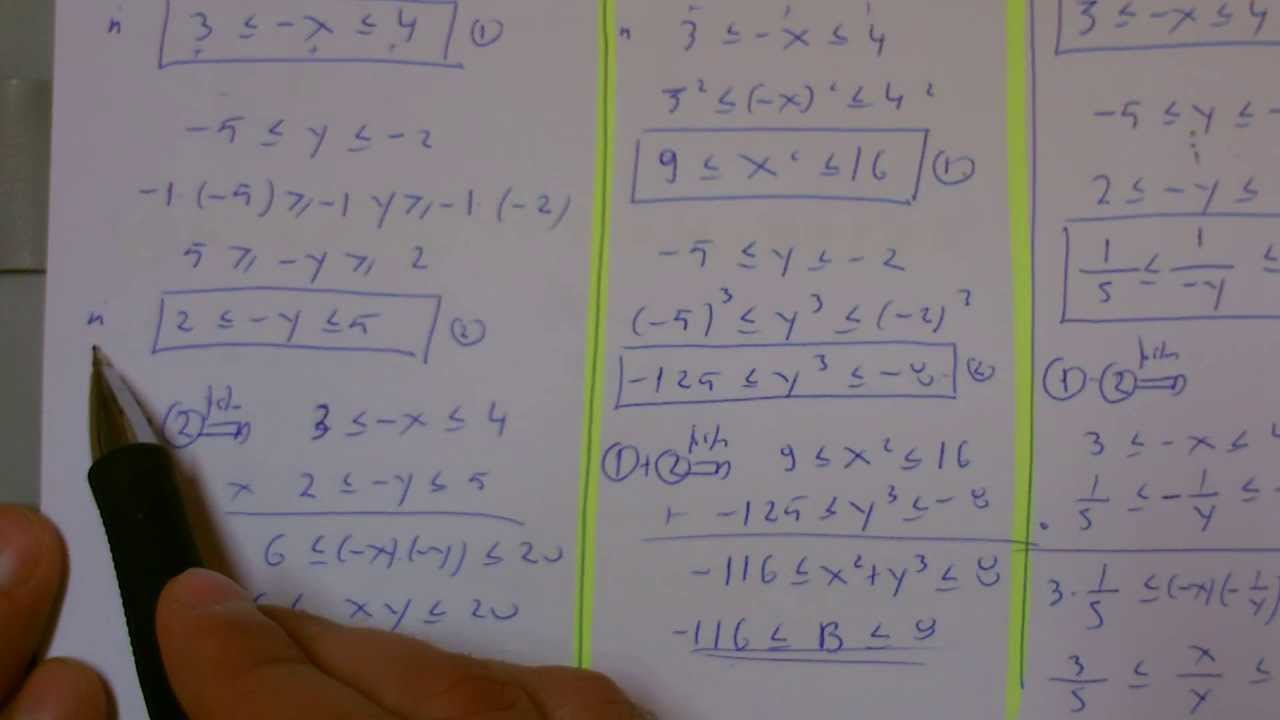 3 ≤ -x ≤ 4 ①
-5 ≤ y ≤ -2
-1·(-5) ≥ -1 y ≥ -1·(-2)
5 ≥ -y ≥ 2
2 ≤ -y ≤ 5 ②
② ⇒ 3 ≤ -x ≤ 4
x 2 ≤ -y ≤ 5
6 ≤ (-x)·(-y) ≤ 20
xy ≤ 20
3 ≤ -x ≤ 4
3² ≤ (-x)² ≤ 4²
9 ≤ x² ≤ 16 ①
-5 ≤ y ≤ -2
(-5)³ ≤ y³ ≤ (-2)³
-125 ≤ y³ ≤ -8 ②
①+② ⇒ 9 ≤ x² ≤ 16
+ -125 ≤ y³ ≤ -8
-116 ≤ x²+y³ ≤ 8
-116 ≤ B ≤
3 ≤ -x ≤ 4
-5 ≤ y ≤ -
2 ≤ -y ≤
1/5 ≤ 1/-y ≤
①·② ⇒
3 ≤ -x ≤ 4
1/5 ≤ -1/y ≤
3·1/5 ≤ (-x)(-1/y)
3/5 ≤ x/y ≤